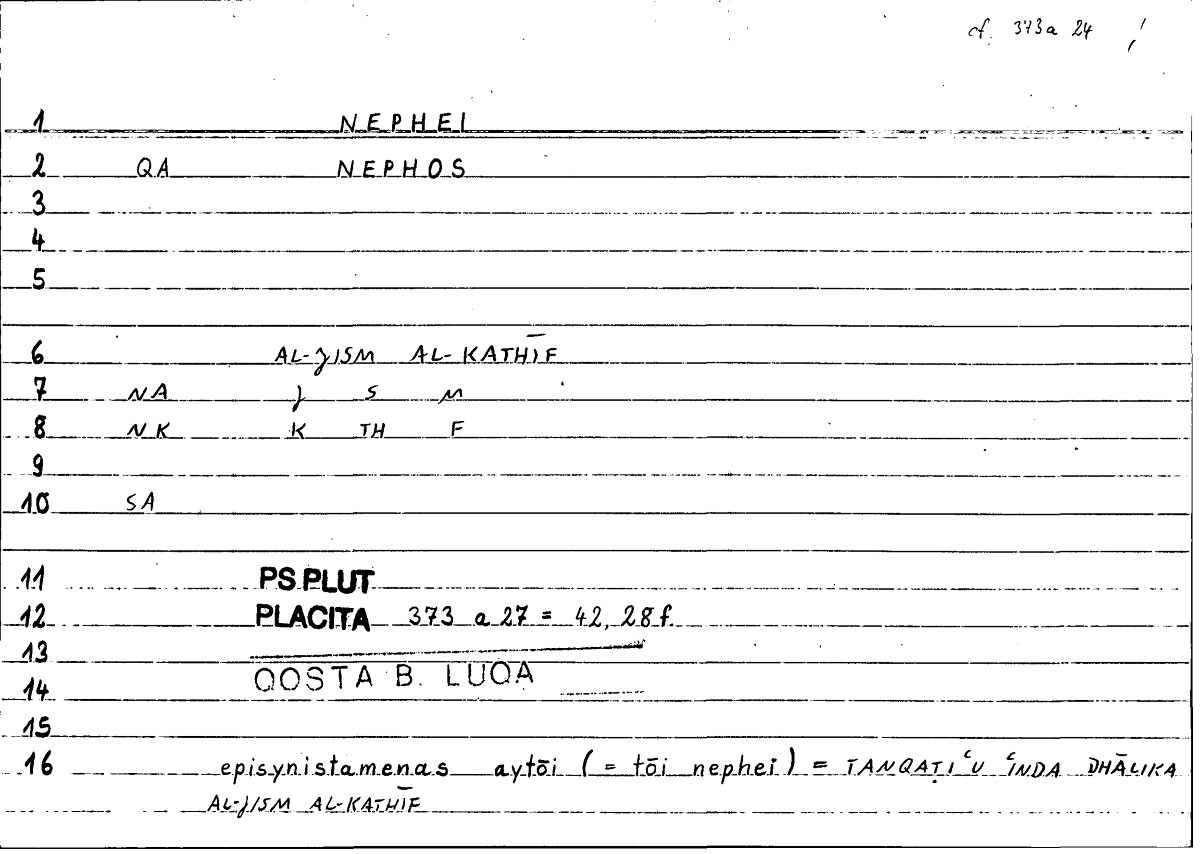 cf. 373a 24 !
1 NEPHEI
2 QA NEPHOS
3
4
5
6 AL-JISM AL-KATHĪF
7 NA J S M
8 NK K TH F
9
10 SA
11 PS.PLUT
12 PLACITA 373 a 27 = 42, 28 f.
13
14 QOSTA B. LUQA
15
16 episynistamenas aytōi (= tōi nephei) = TANQAṬIʿU ʿINDA DHĀLIKA
AL-JISM AL-KATHĪF